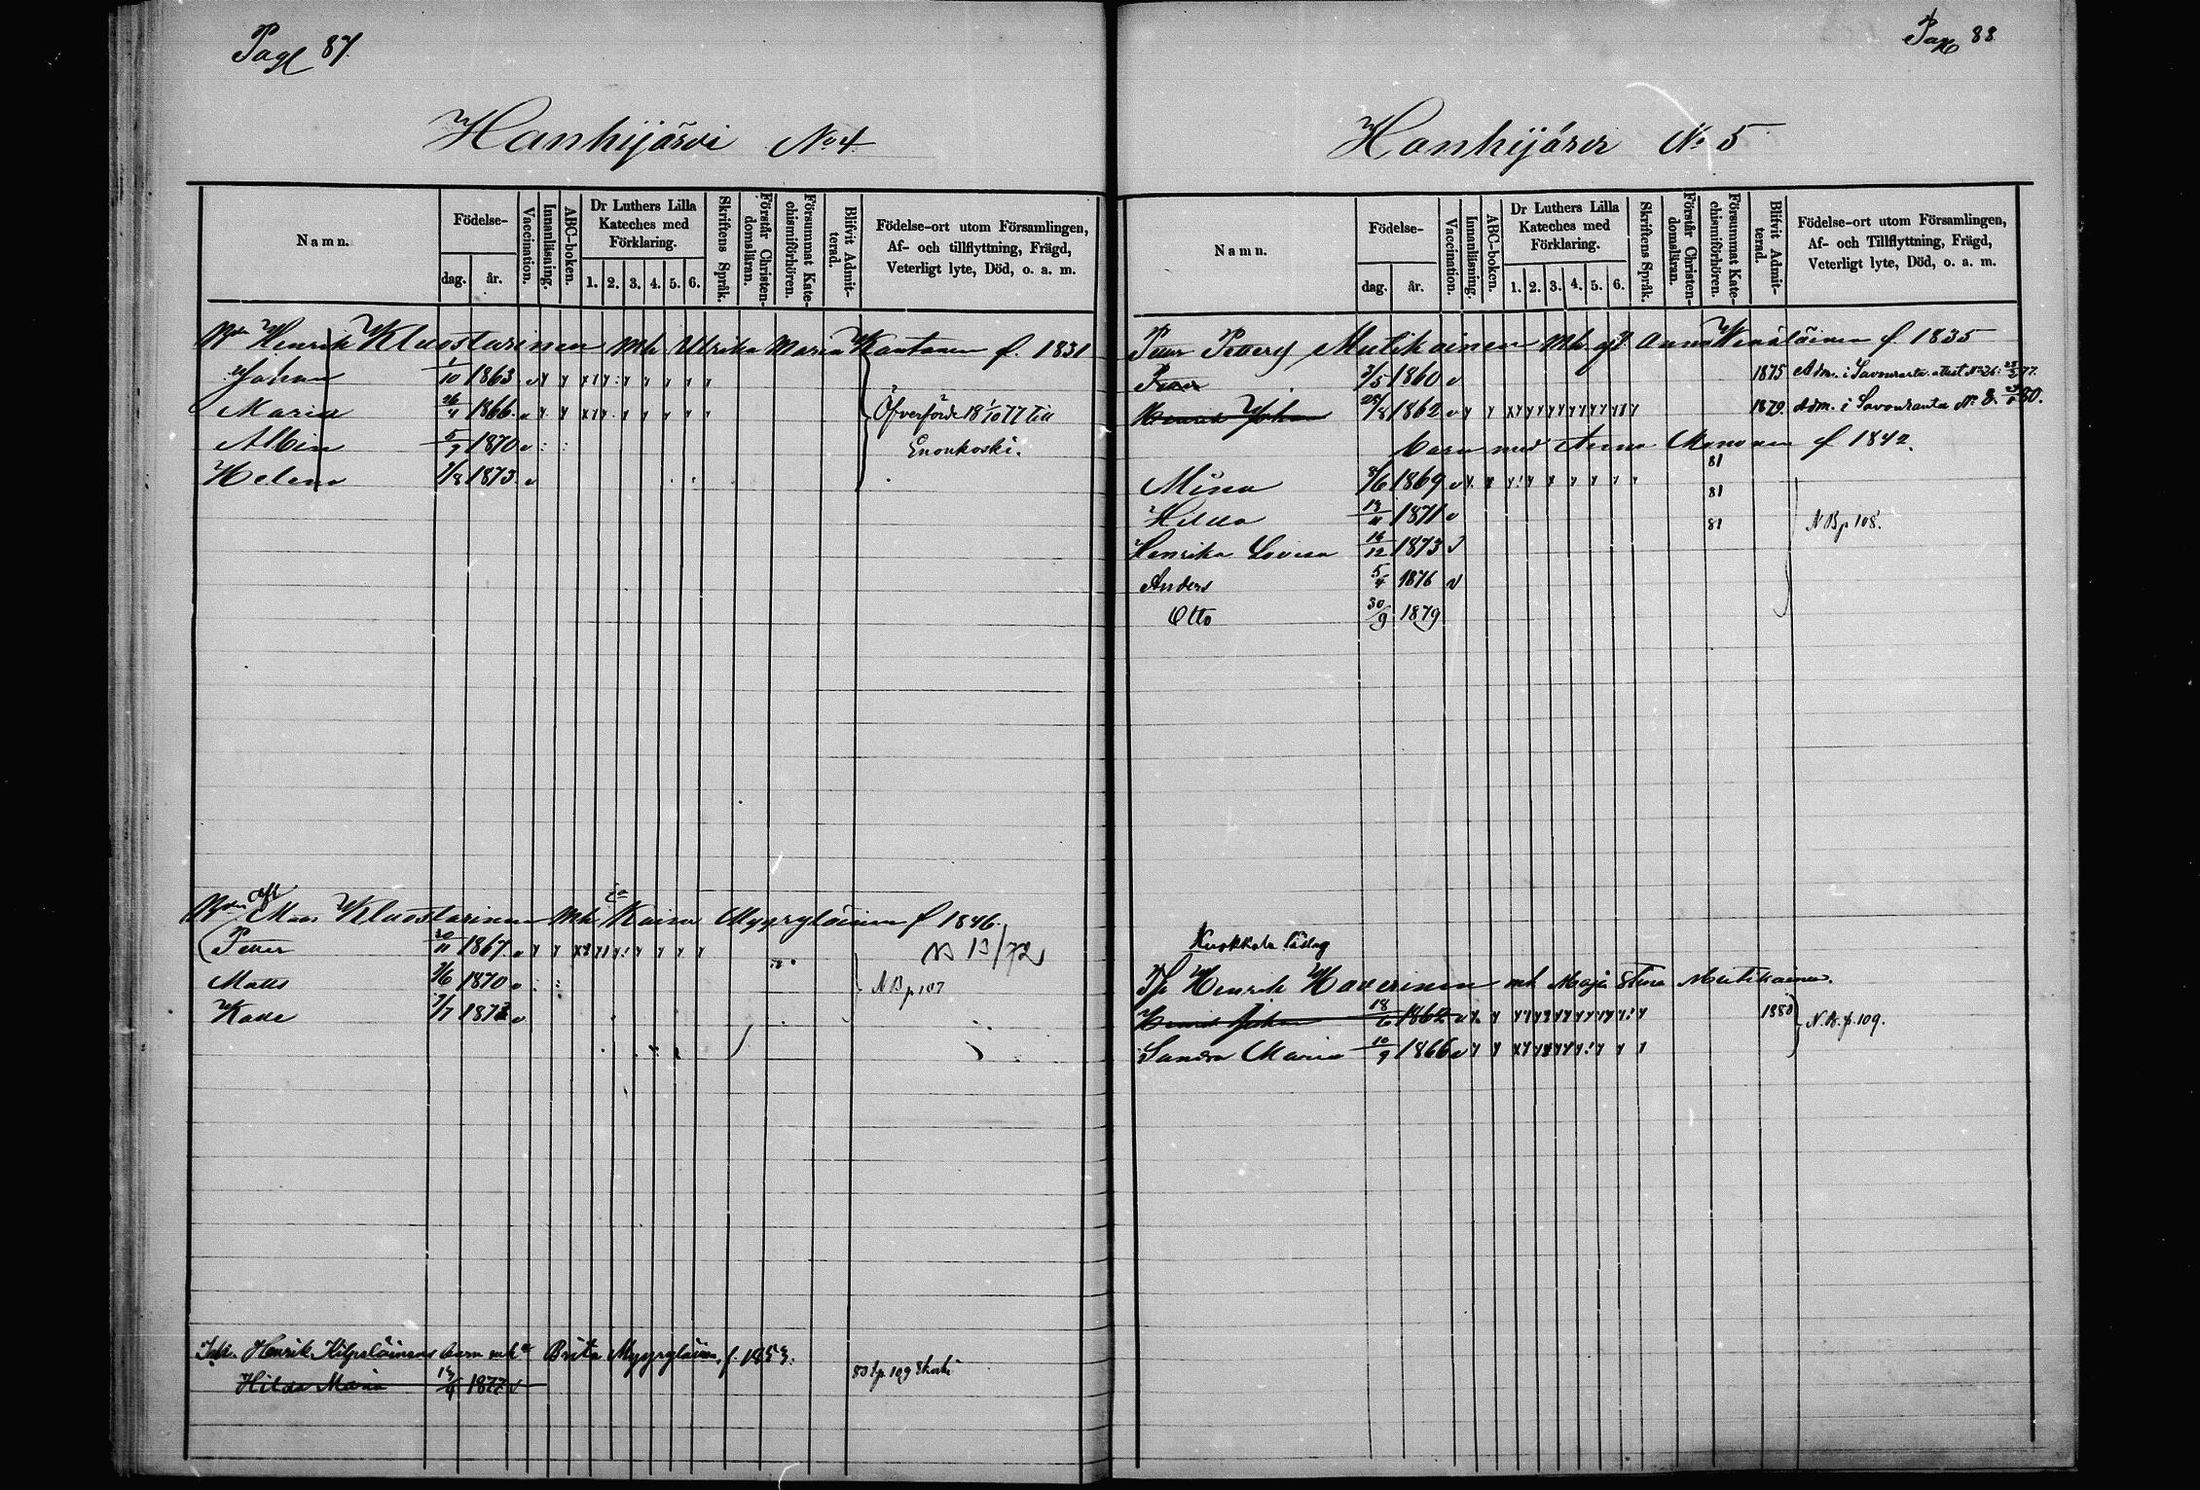 Page 87.
Hanhijärvi No 4
Namn.
Födelse-
dag.
år.
Vaccination.
Innanläsning.
ABC-boken.
Dr Luthers Lilla
Kateches med
Förklaring.
1. 2. 3. 4. 5. 6.
Skriftens Språk.
Förstår Christen-
domsläran.
Försummat Kate-
chismiförhören.
Blifvit Admit-
terad.
Födelse-ort utom Församlingen,
Af- och tillflyttning, Frägd,
Veterligt lyte, Död, o. a. m.
Henrik Kluostarinen mh Ulrika Maria Kontonen f. 1831
Johan 1/10 1863 v
Maria 26/4 1866 v Öfverförde 18 1/10 77 till
Albin 5/9 1870 v Enonkoski.
Helena 2/8 1873 v
Mats Kluostarinen mh Kaisa Myyryläinen f 1846.
Petter 30/11 1867 v
Matts 3/6 1870 v NB p 107
7/7 187 v
Henrik Kilpeläinens barn mh Brita Myyryläinen, f. 1853.
Hilda Maria 1877 v
Page 88
Hanhijärvi No 5
Namn.
Födelse-
dag.
år.
Vaccination.
Innanläsning.
ABC-boken.
Dr Luthers Lilla
Kateches med
Förklaring.
1. 2. 3. 4. 5. 6.
Skriftens Språk.
Förstår Christen-
domsläran.
Försummat Kate-
chismiförhören.
Blifvit Admit-
terad.
Födelse-ort utom Församlingen,
Af- och Tillflyttning, Frägd,
Veterligt lyte, Död, o. a. m.
Petter Petters Mutikainen mh Anna Venäläinen f. 1835
Petter 3/5 1860 v 1875 Adm. i Savonranta
Henrik Johan 25/8 1862 v 1879 Adm. i Savonranta No 8
barn med Anna f 1842.
Mina 8/6 1869 v 81
Hilda 13/11 1871 v 81
Henrika Lovisa 14/12 1873 v 81 NB p 108.
Anders 5/4 1876 v
Otto 30/9 1879
Henrik Haverinen mh Maja Stina Mutikainen.
Henrik Johan 18/6 1862 v 1880 N.B. p. 109.
Sandra Maria 10/9 1866 v